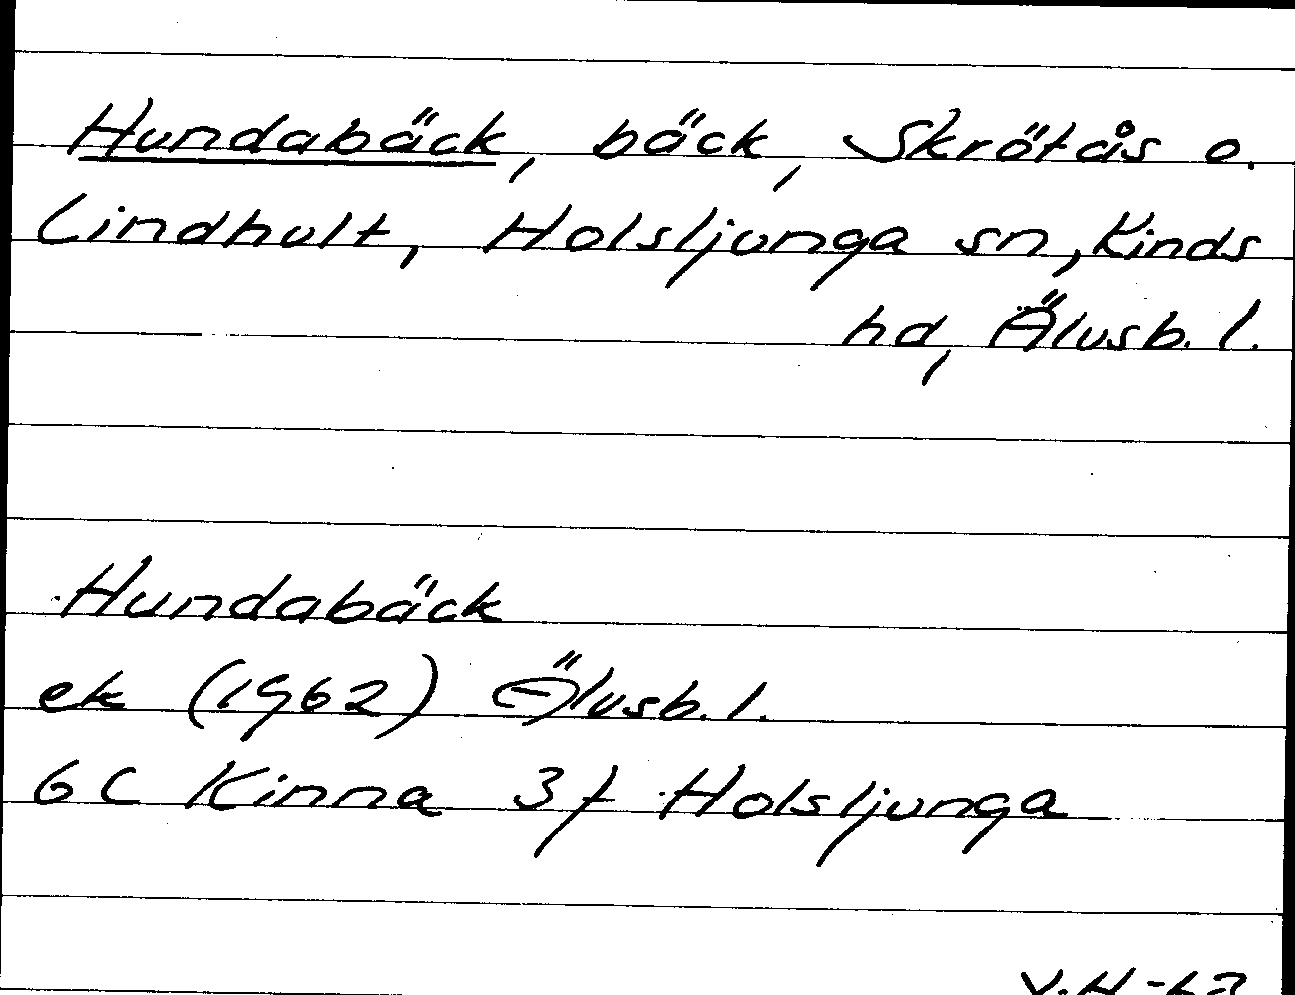 Hundabäck, bäck, Skrötås o.
Lindhult, Holsljunga sn, Kinds
hd, Älvsb. l.
Hundabäck
ek (1962) Älvsb. l.
6 C Kinna 3f Holsljunga